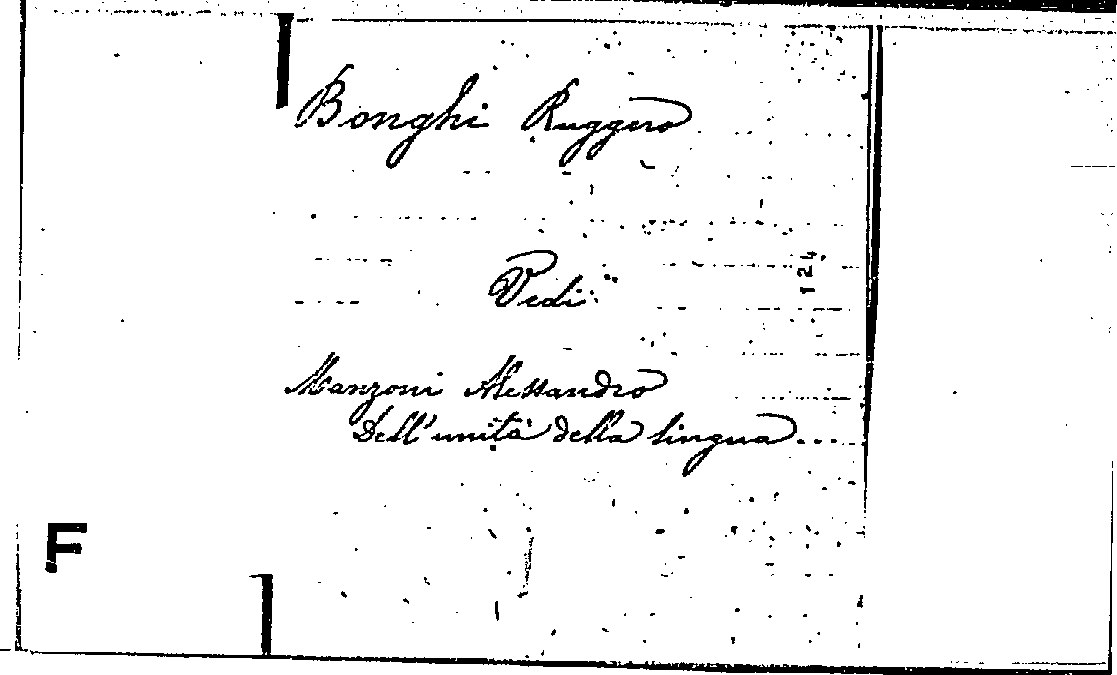 Bonghi Ruggero
124
Vedi
Manzoni Alessandro
Dell'unità della lingua....
F